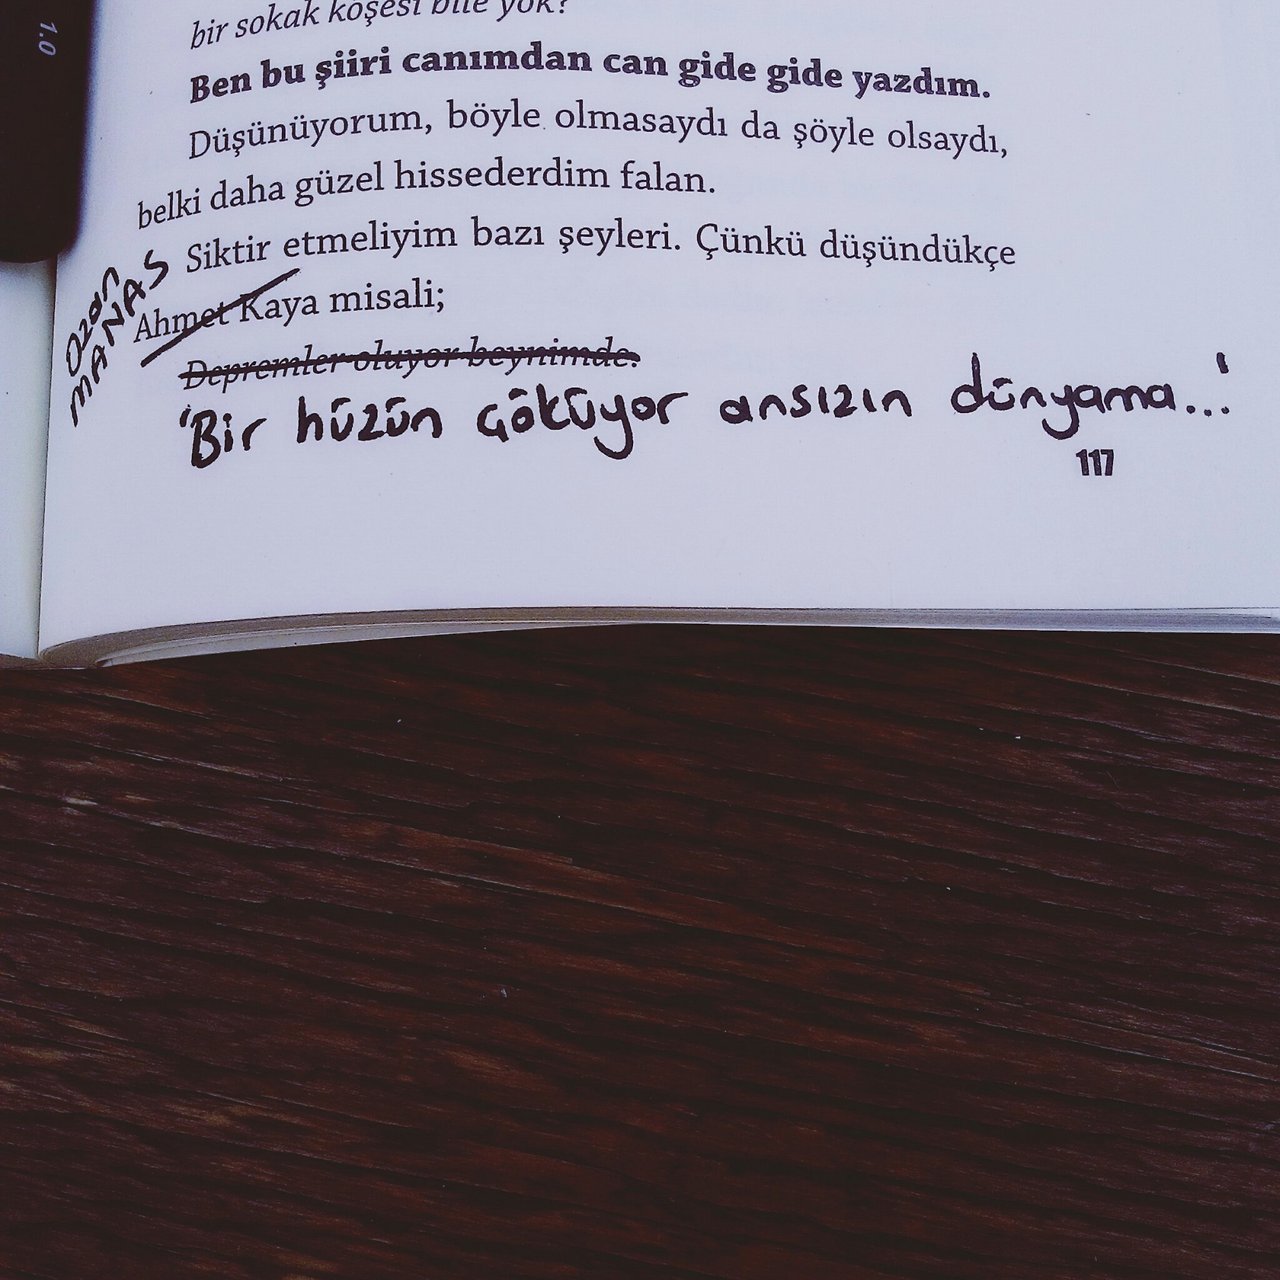 1.0
bir sokak köşesi bile yok?
Ben bu şiiri canımdan can gide gide yazdım.
Düşünüyorum, böyle olmasaydı da şöyle olsaydı,
belki daha güzel hissederdim falan.
Siktir etmeliyim bazı şeyleri. Çünkü düşündükçe
Ozan
MANAS
Ahmet Kaya misali;
Depremler oluyor beynimde.
'Bir hüzün çöküyor ansızın dünyama...'
117